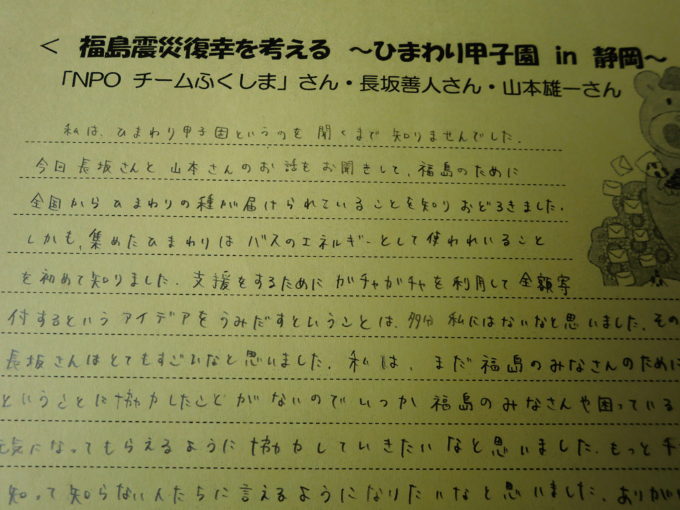 < 福島震災復幸を考える ～ひまわり甲子園 in 静岡～
「NPO チームふくしま」さん・長坂善人さん・山本雄一さん
私は、ひまわり甲子園というのを 聞くまで 知りませんでした。
今日 長坂さんと 山本さんのお話をお聞きして、福島のために
全国から ひまわりの種が届けられていることを知り おどろきました。
しかも、集めたひまわりは バスのエネルギーとして使われいること
を初めて知りました。支援をするために ガチャガチャを利用して 全額寄
付するという アイデアをうみだすということは、多分 私にはないなと思いました。その
長坂さんはとてもすごいなと思いました。私は、まだ 福島のみなさんのために
ということに協力したことがないのでいつか 福島のみなさんや困っている
元気になってもらえるように 協力していきたいなと思いました。もっと
知って 知らない人たちに言えるようになりたいなと思いました。ありが